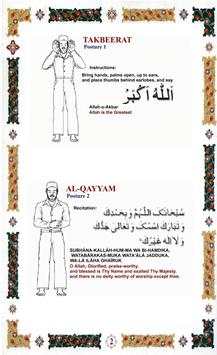 TAKBEERAT
Posture 1
Instructions:
Bring hands, palms open, up to ears,
and place thumbs behind earlobes, and say
اَللّٰهُ اَكْبَرُ
Allah-u-Akbar
Allah is the Greatest
AL-QAYYAM
Posture 2
Recitation:
سُبْحَانَكَ اللّٰهُمَّ وَبِحَمْدِكَ
وَتَبَارَكَ اسْمُكَ وَتَعَالٰى جَدُّكَ
وَلَا اِلٰهَ غَيْرُكَ
SUBHÂNA-KALLÂH-HUM-MA WA BI-HAMDIKA,
WATABÂRAKAS-MUKA WATA'ÂLÂ JADDUKA,
WA-LÂ ILÂHA GHAIRUK
O Allah, Glorified, praise-worthy
and blessed is Thy Name and exalted Thy Majesty,
and there is no deity worthy of worship except Thee.
2